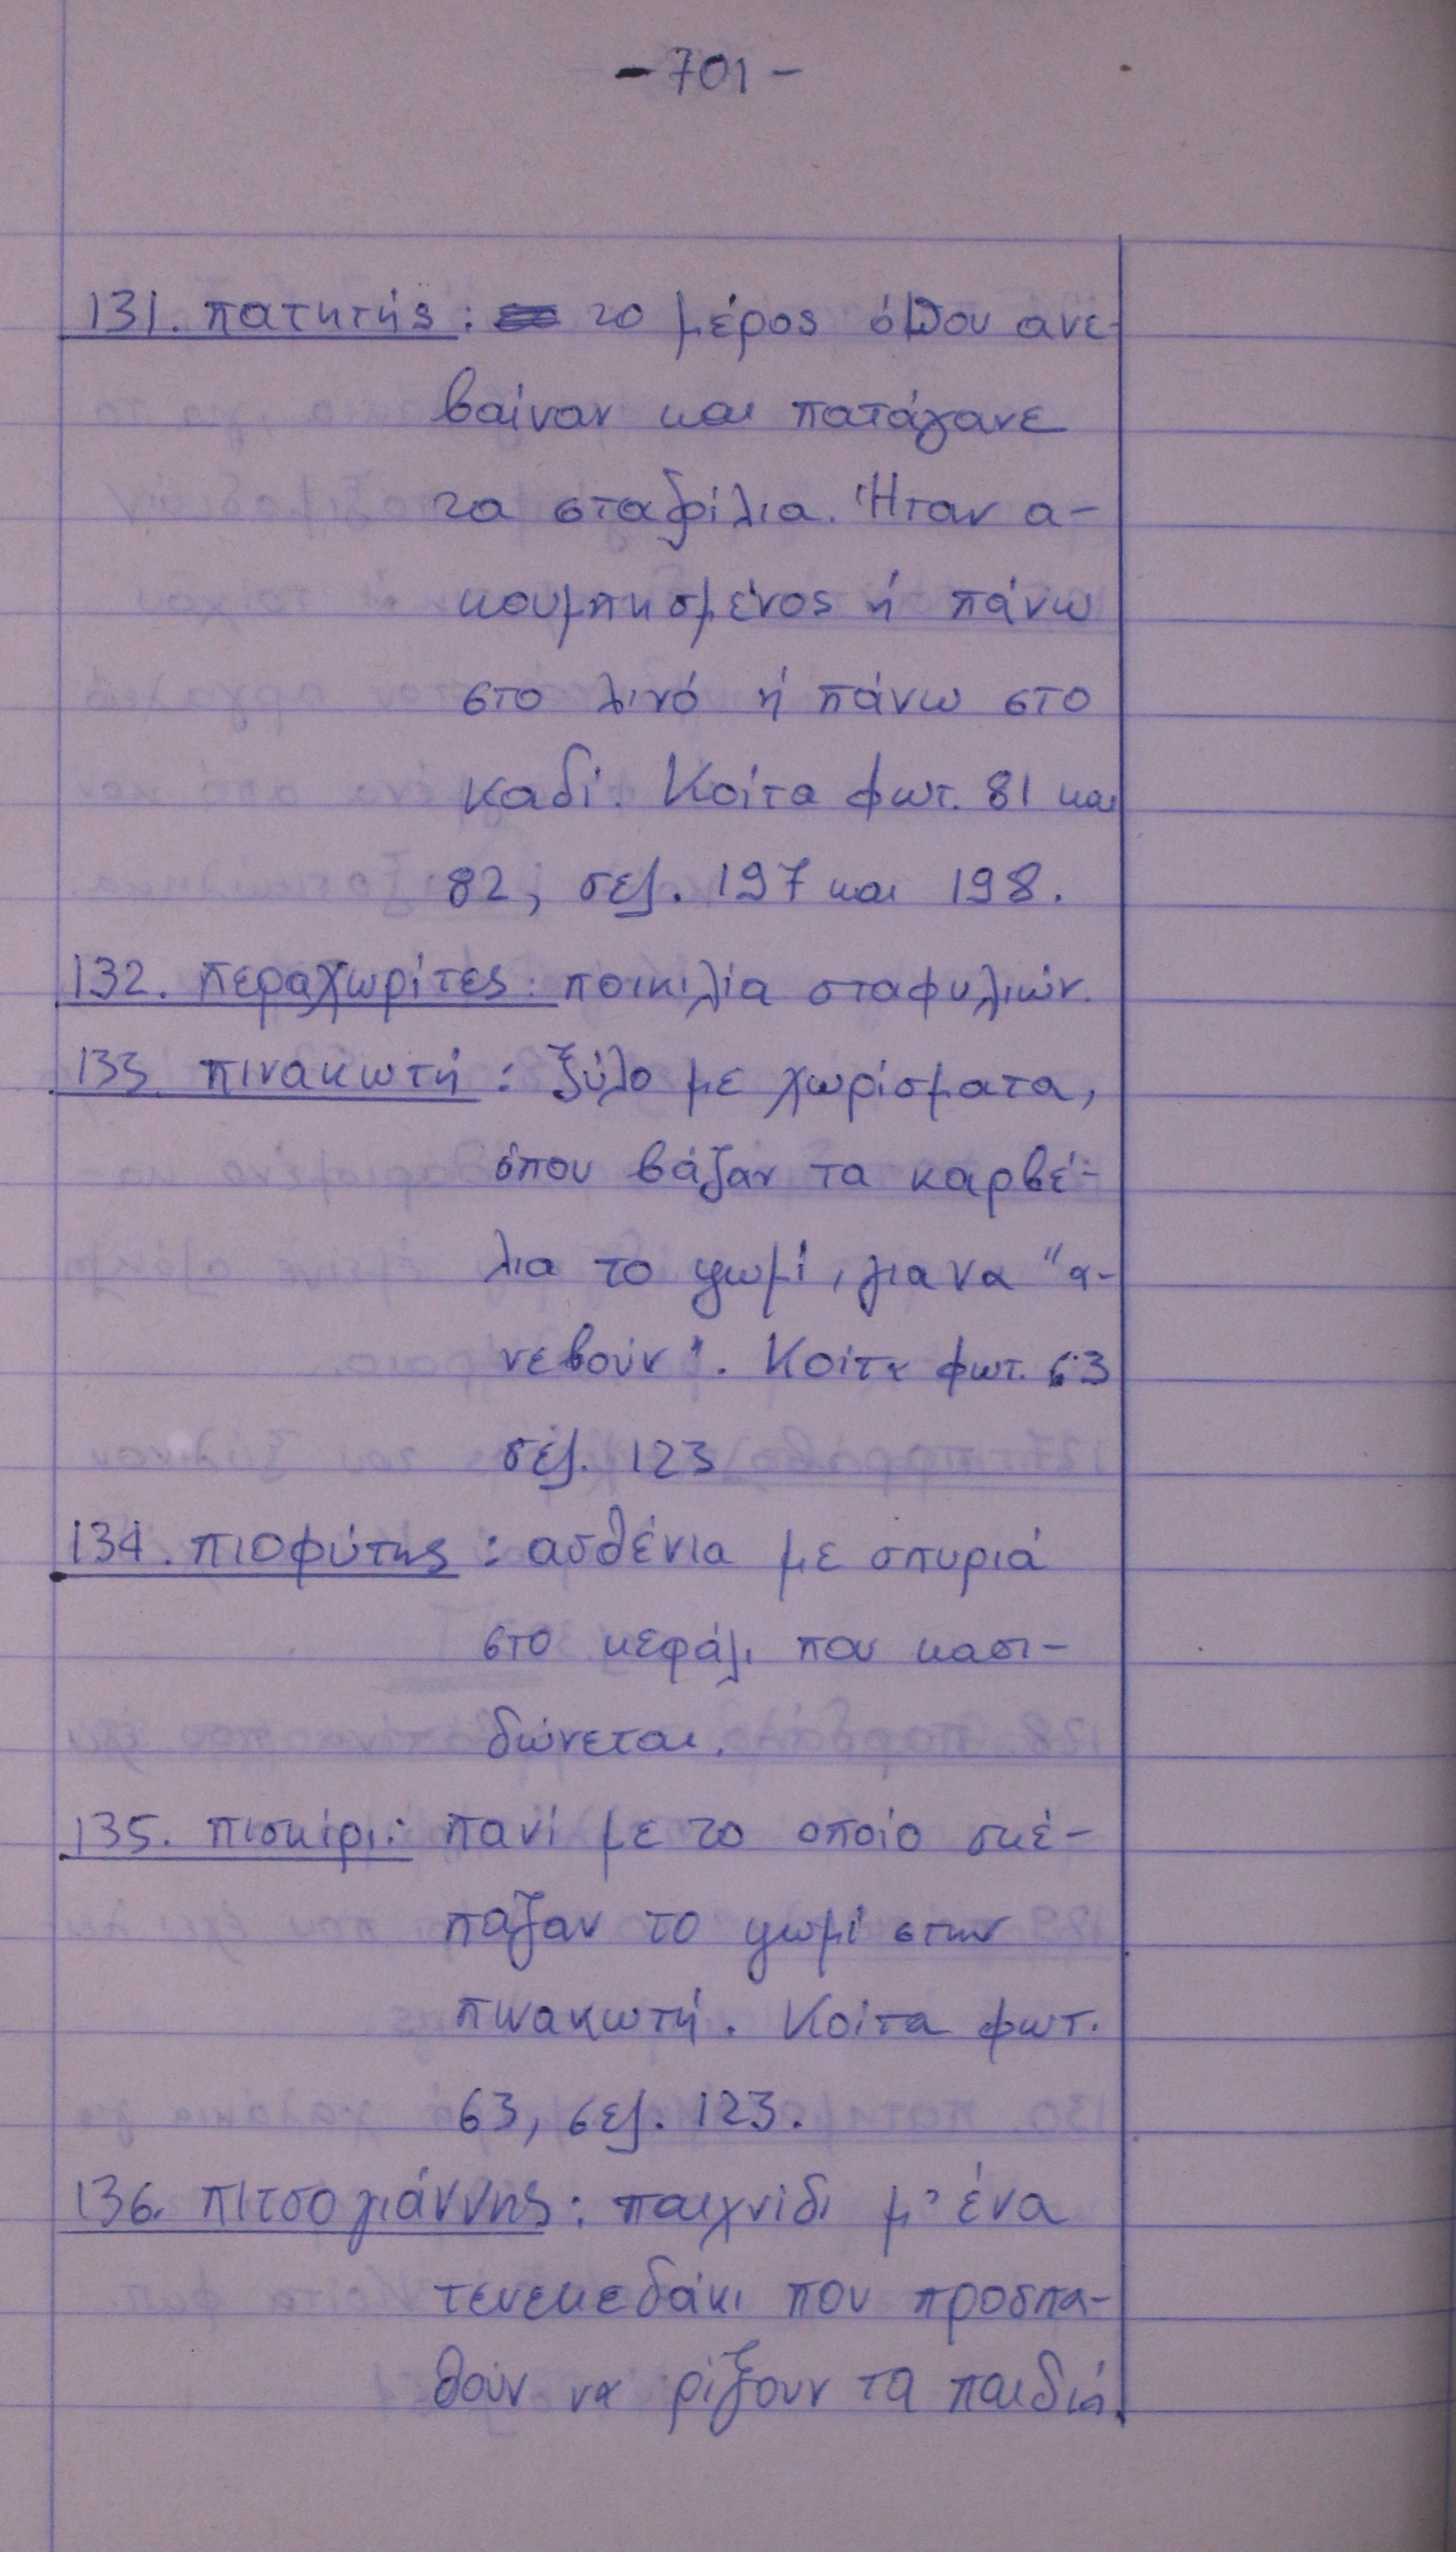 - 701 -
131. πατητής: το μέρος όπου ανε-
βαίναν και πατάγανε
τα σταφίλια. Ήταν α-
κουμπησμένος ή πάνω
στο λινό ή πάνω στο
καδί. Κοίτα φωτ. 81 και
82, σελ. 197 και 198.
132. περαχωρίτες: ποικιλία σταφυλιών.
133. πινακωτή: ξύλο με χωρίσματα,
όπου βάζαν τα καρβέ-
λια το ψωμί, για να "α-
νεβούν". Κοίτα φωτ. 63
σελ. 123
134. πιοφύτης: ασθένια με σπυριά
στο κεφάλι που κασι-
δώνεται.
135. πισκίρι: πανί με το οποίο σκέ-
παζαν το ψωμί στην
πινακωτή. Κοίτα φωτ.
63, σελ. 123.
136. πιτσογιάννης: παιχνίδι μ' ένα
τενεκεδάκι που προσπα-
θούν να ρίξουν τα παιδιά.